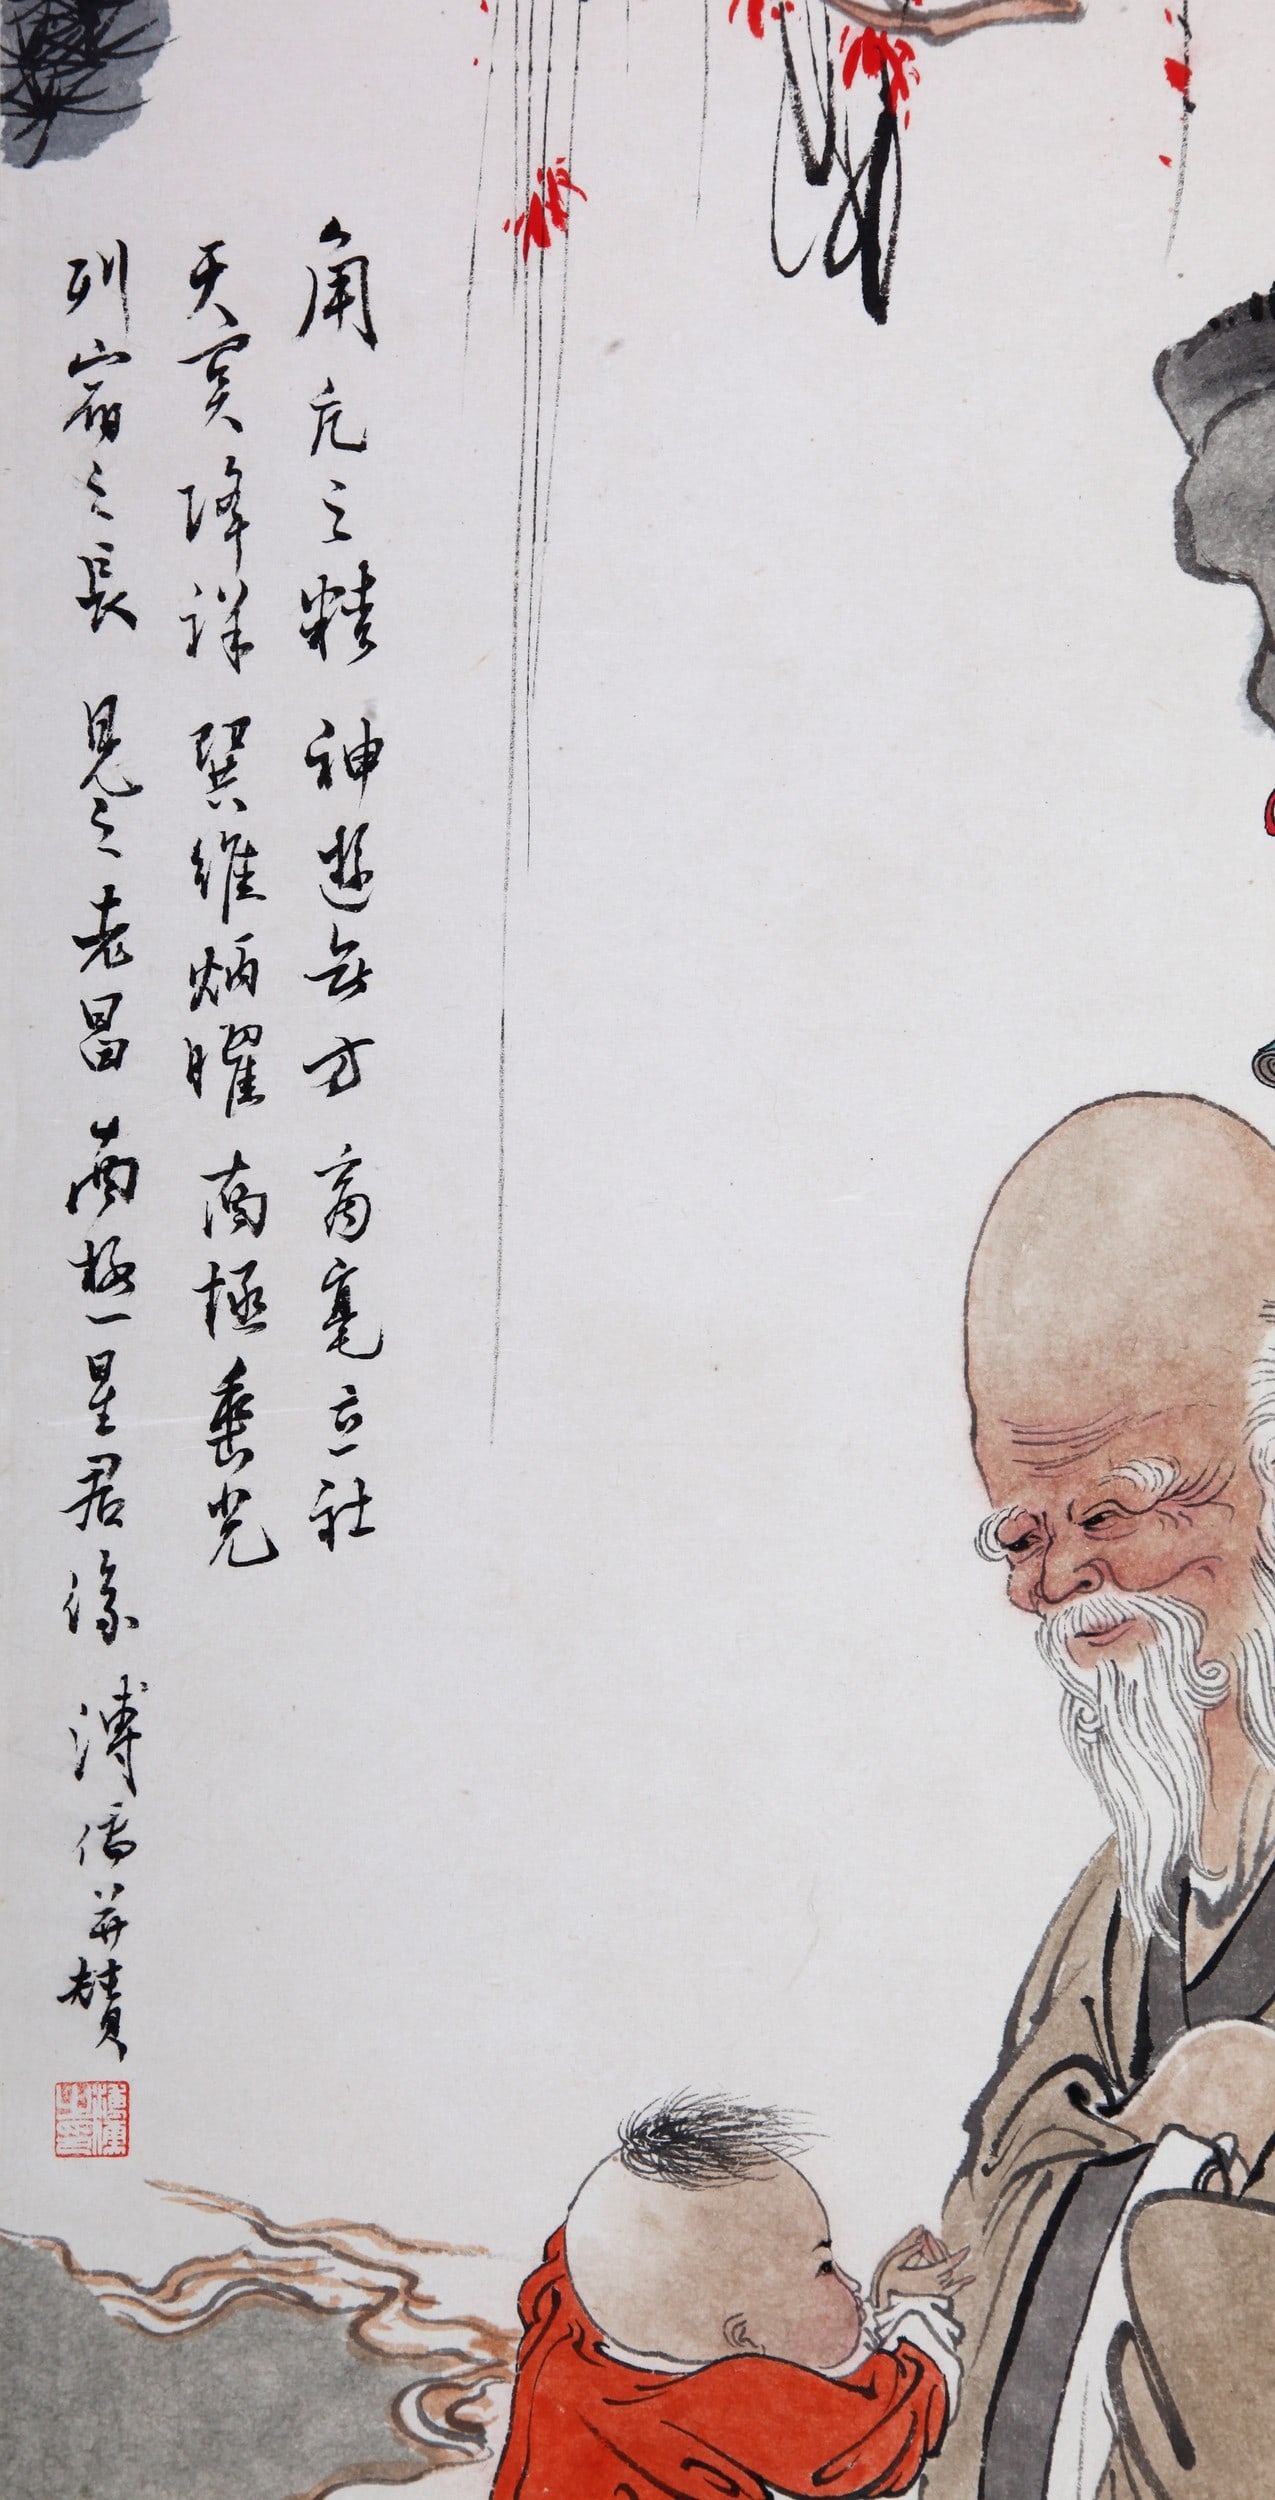 角亢之精 神遊無方 商亳立社
天冥降祥 巽維炳曜 南極垂光
列宿之長 見之老昌 南極星君像 溥儒并贊